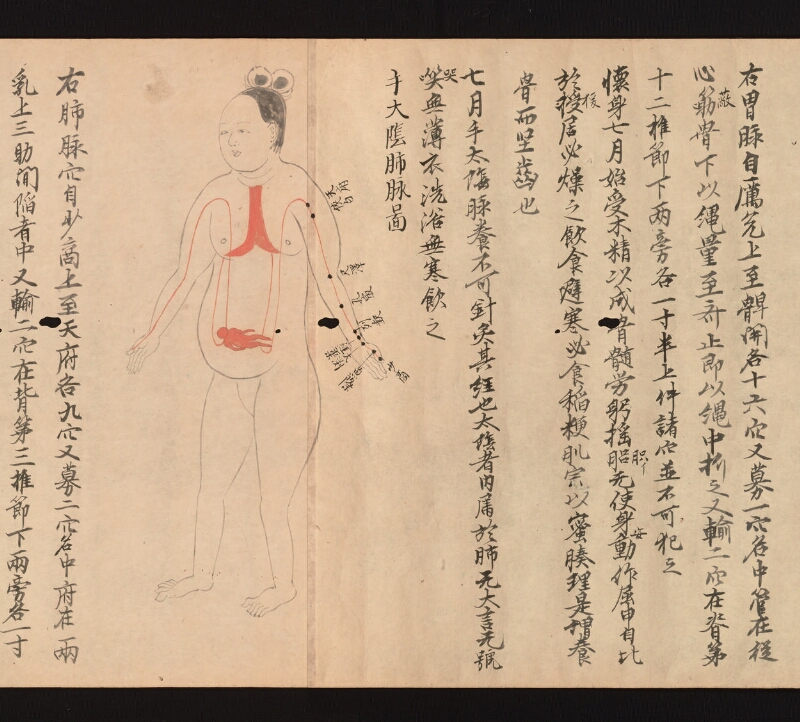 右胃脉自厲兌上至髀開各十六穴又募一穴名中管在從
心蔽筋骨下以繩量至齊止即以繩中折之又輸二穴在脊第
十二推節下兩旁各一寸半上件諸穴並不可犯之
懷身七月始受木精以成骨髓勞躬搖胑无使身安動作屈申自比
於緩居必燥之飲食避寒必食稻粳肌宍以蜜腠理是謂養
骨而堅齒也
七月手太陰脉養不可針灸其經也太陰者内属於肺无大言无號
哭無薄衣洗浴無寒飲之
手大陰肺脉啚
天府
右肺脉穴自少商上至天府各九穴又募二穴名中府在兩
乳上三肋間陷者中又輸二穴在背第三推節下兩旁各一寸